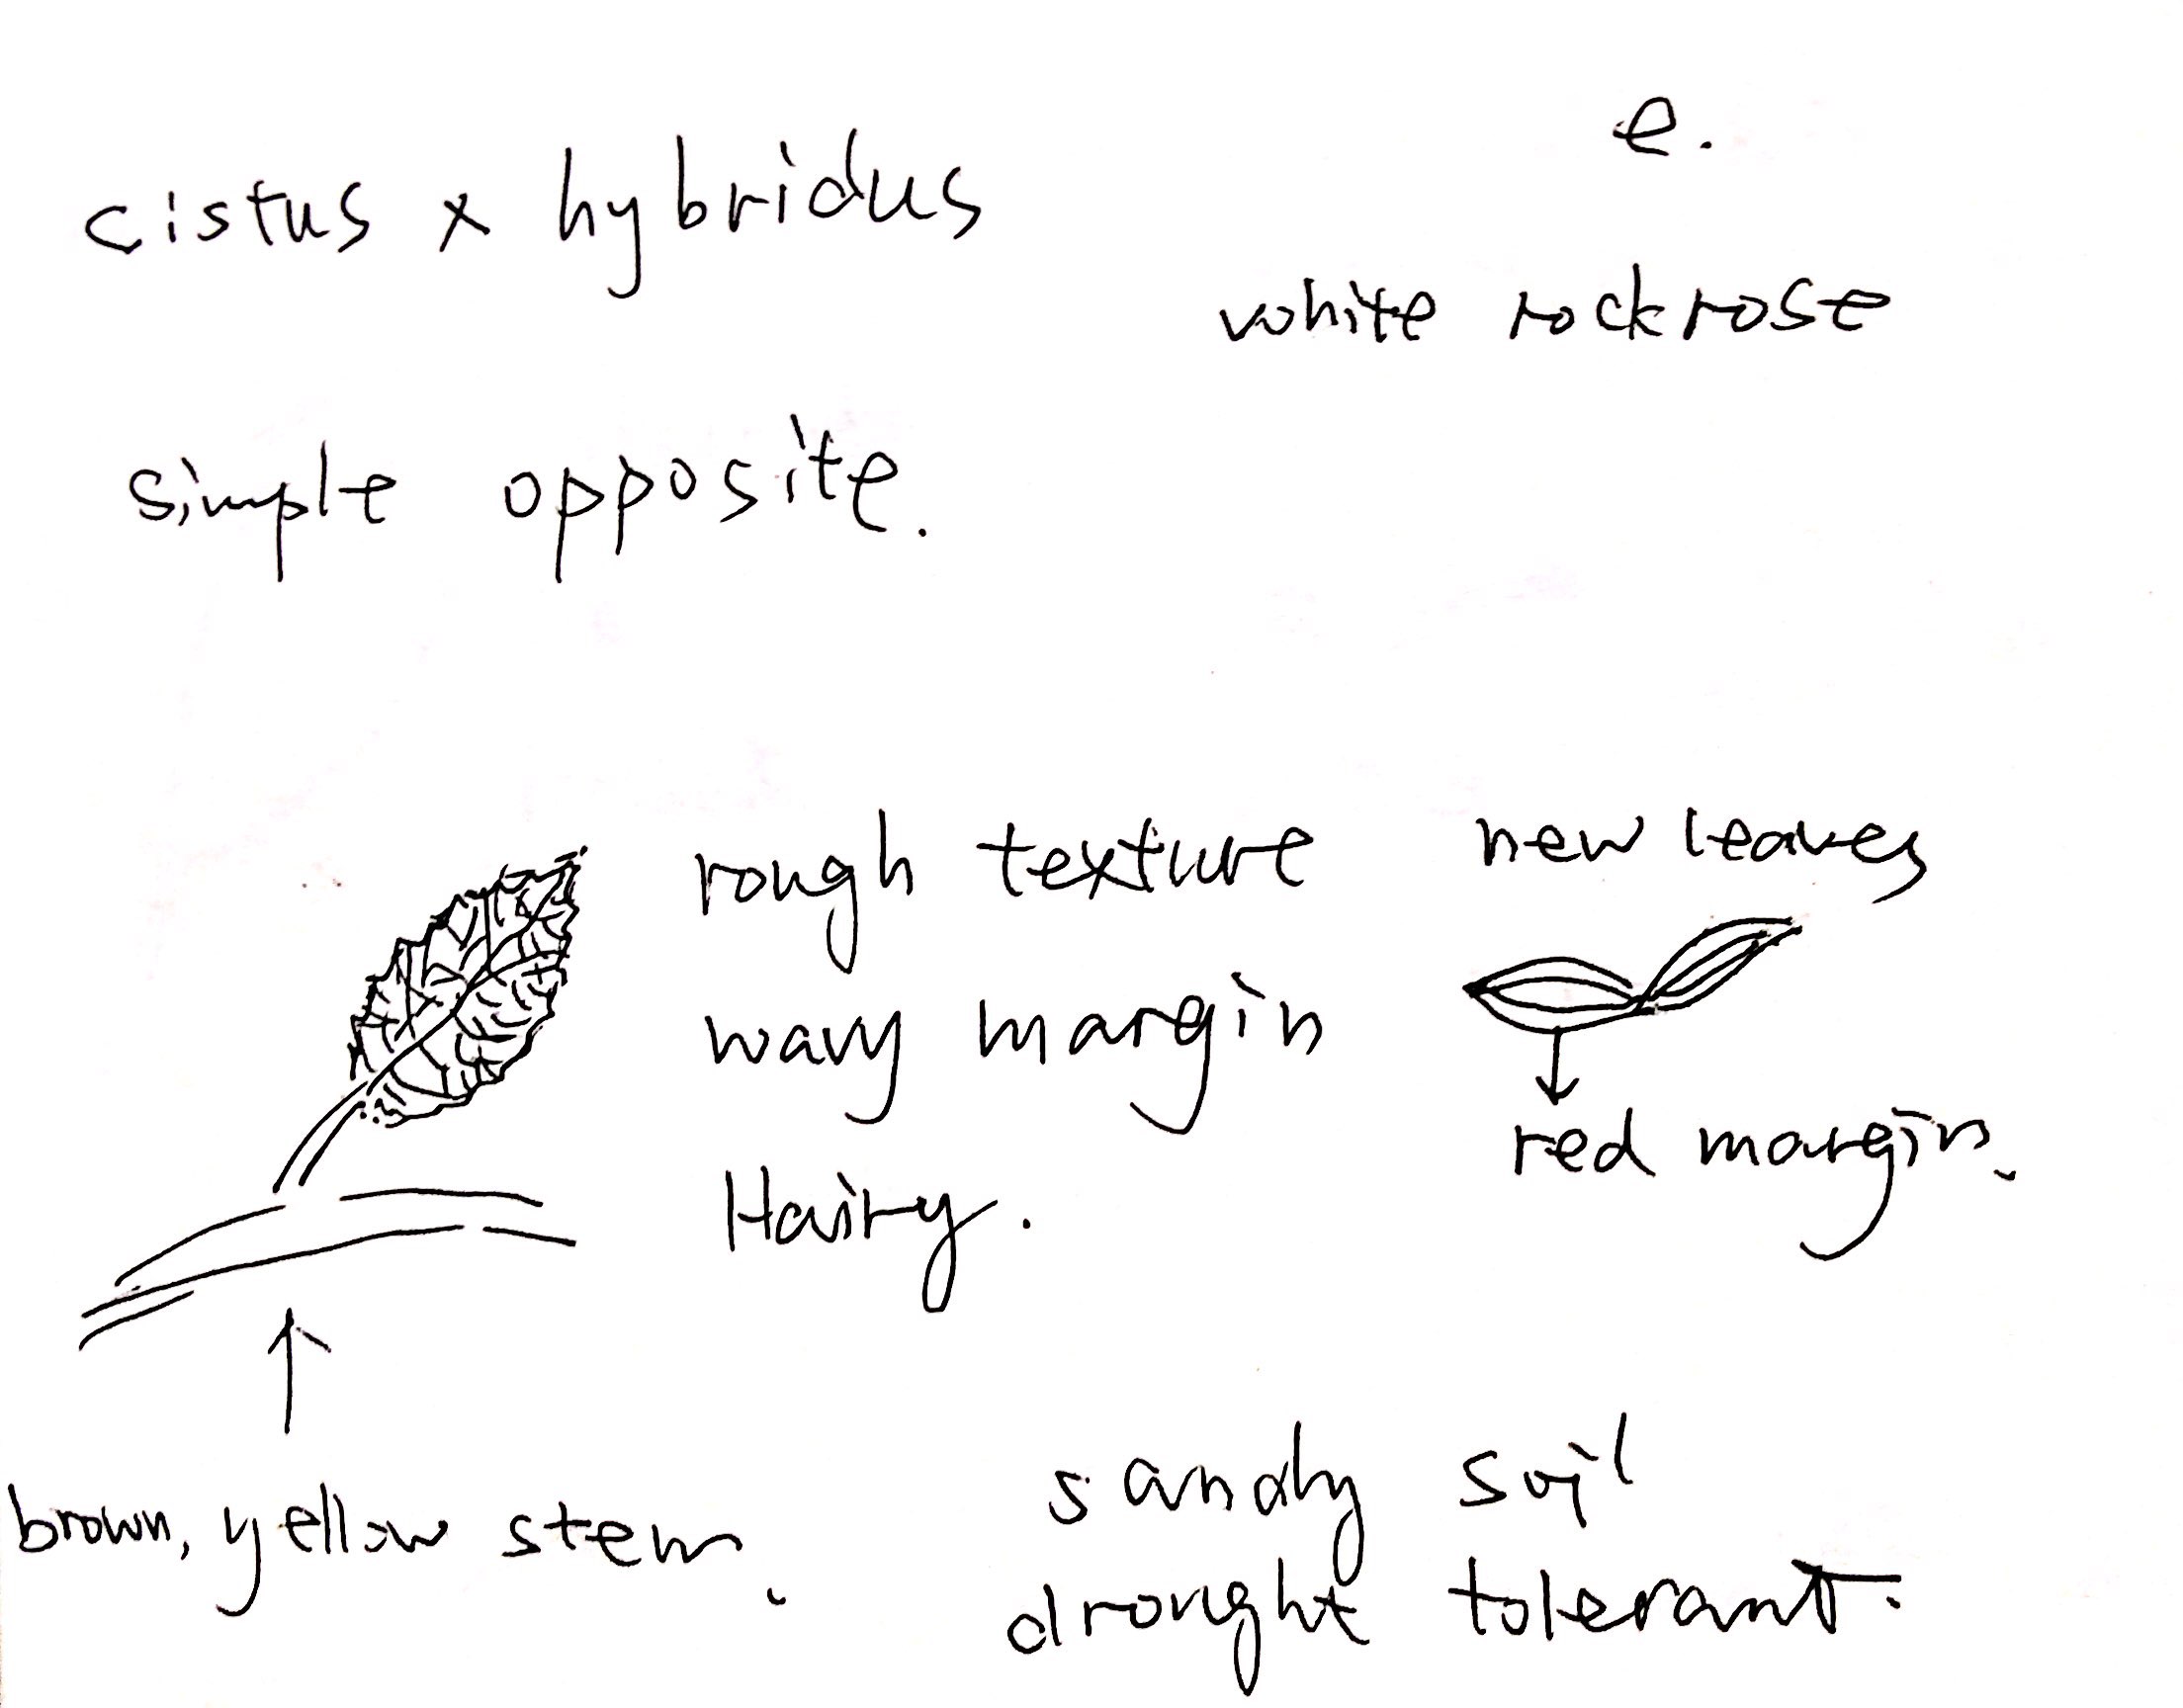 e.
cistus x hybridus
white rockrose
simple opposite.
rough texture
wavy margin
Hairy.
new leaves
red margin.
brown, yellow stem.
sandy soil
drought tolerant.